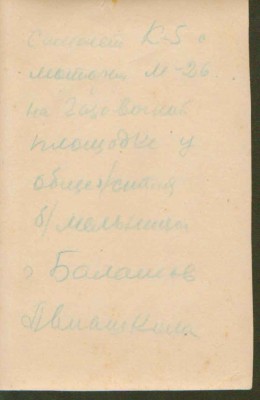 Самолет К-5 с
мотором М-26
на
площадке у
общежития
б/мельницы
г Балашов
Авиашкола